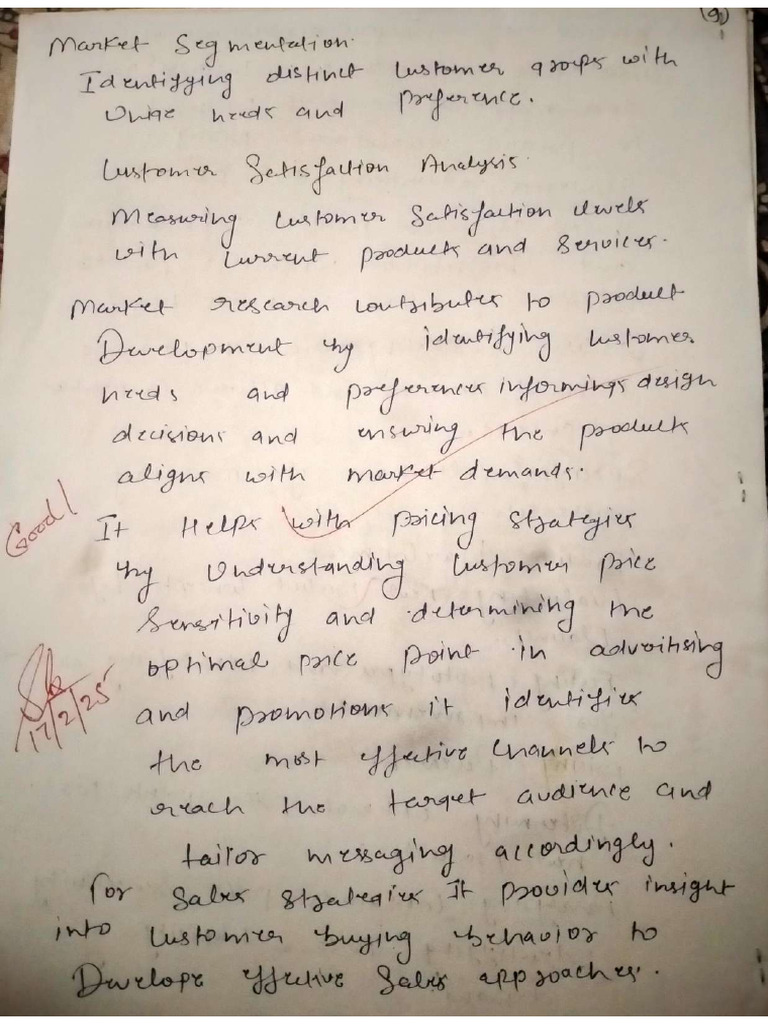 (9)
Market Segmentation.
Identifying distinct customer groups with
Uniqe needs and preference.
Customer Satisfaction Analysis.
Measuring customer satisfaction levels
with current products and services.
Market research contributes to product
Development by identifying customer
needs and preferences informings design
decisions and ensuring the products
aligns with market demands.
Good!
It Helps with pricing strategies
by Understanding customer price
Sensitivity and determining the
optimal price point in advertising
and promotions it identifies
17/2/25
the most effective channels to
reach the target audience and
tailor messaging accordingly.
for sales strategies It provides insight
into customer buying behavior to
Develope effective sales approaches.